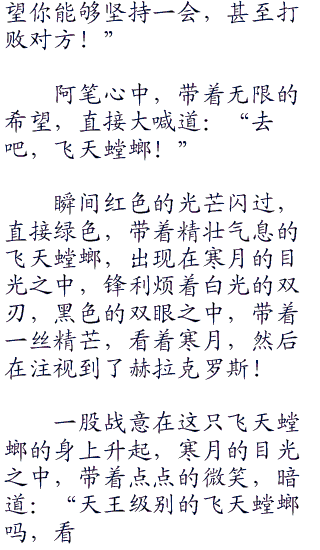 望你能够坚持一会，甚至打
败对方！”
阿笔心中，带着无限的
希望，直接大喊道：“去
吧，飞天螳螂！”
瞬间红色的光芒闪过，
直接绿色，带着精壮气息的
飞天螳螂，出现在寒月的目
光之中，锋利烦着白光的双
刃，黑色的双眼之中，带着
一丝精芒，看着寒月，然后
在注视到了赫拉克罗斯！
一股战意在这只飞天螳
螂的身上升起，寒月的目光
之中，带着点点的微笑，暗
道：“天王级别的飞天螳螂
吗，看